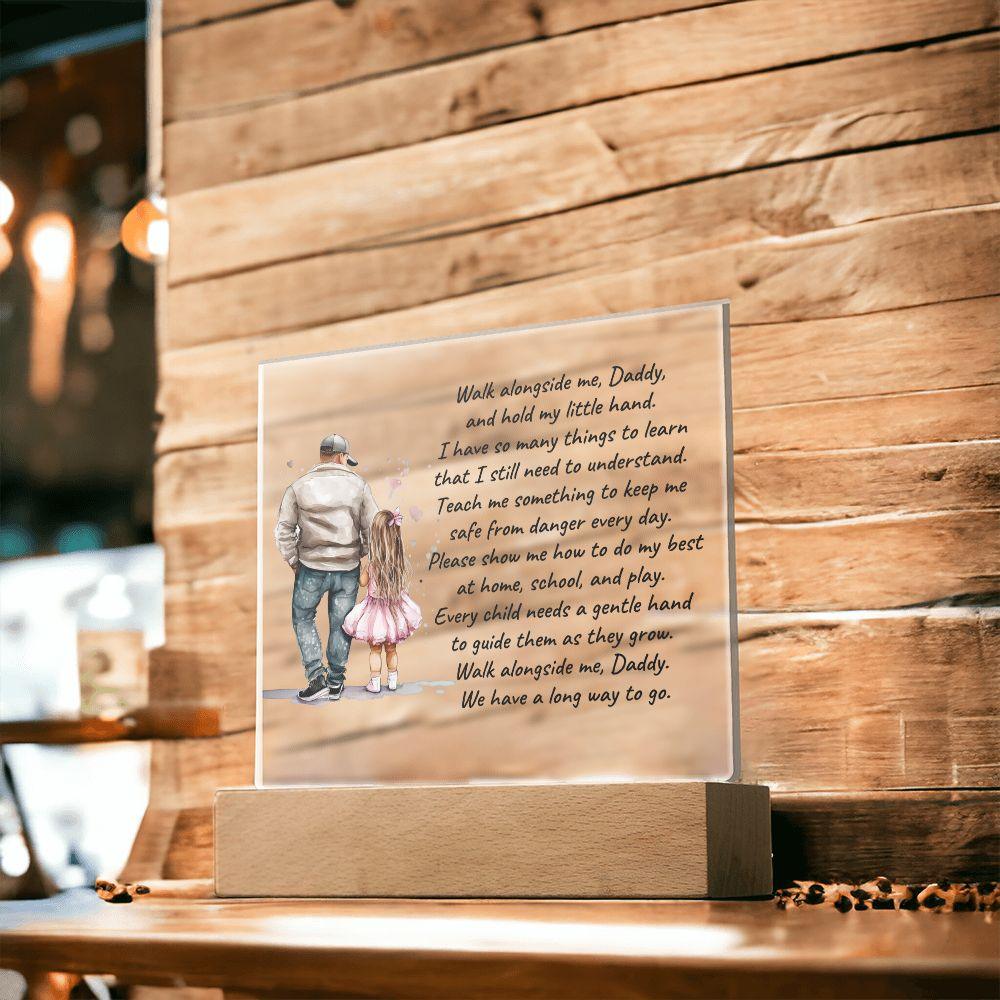 Walk alongside me, Daddy,
and hold my little hand.
I have so many things to learn
that I still need to understand.
Teach me something to keep me
safe from danger every day.
Please show me how to do my best
at home, school, and play.
Every child needs a gentle hand
to guide them as they grow.
Walk alongside me, Daddy.
We have a long way to go.